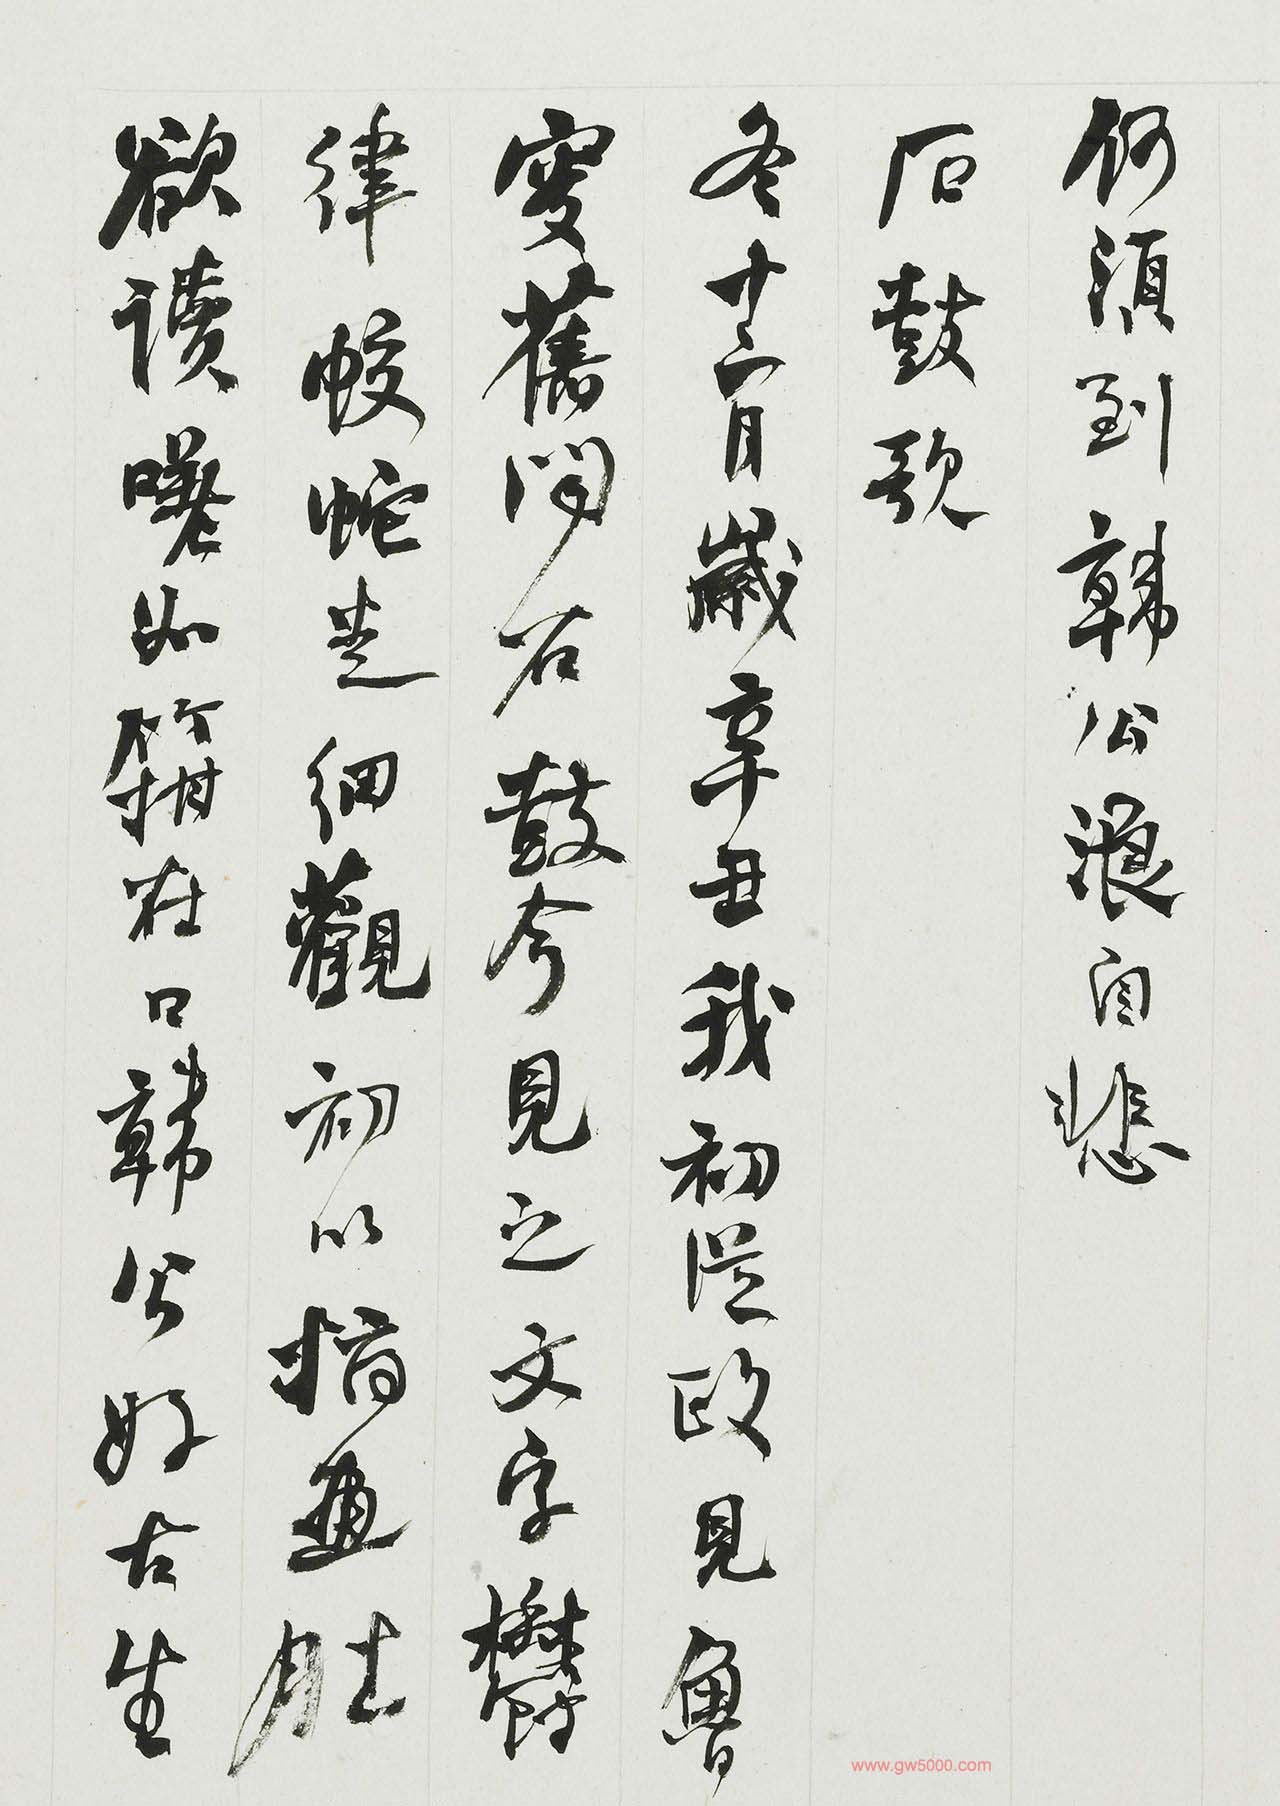 何須到韓公浪自悲
石鼓歌
冬十二月歲辛丑我初從政見魯
叟舊聞石鼓今見之文字鬱
律蛟蛇走細觀初以指畫肚
欲讀嗟如箝在口韓公好古生
www.gw5000.com